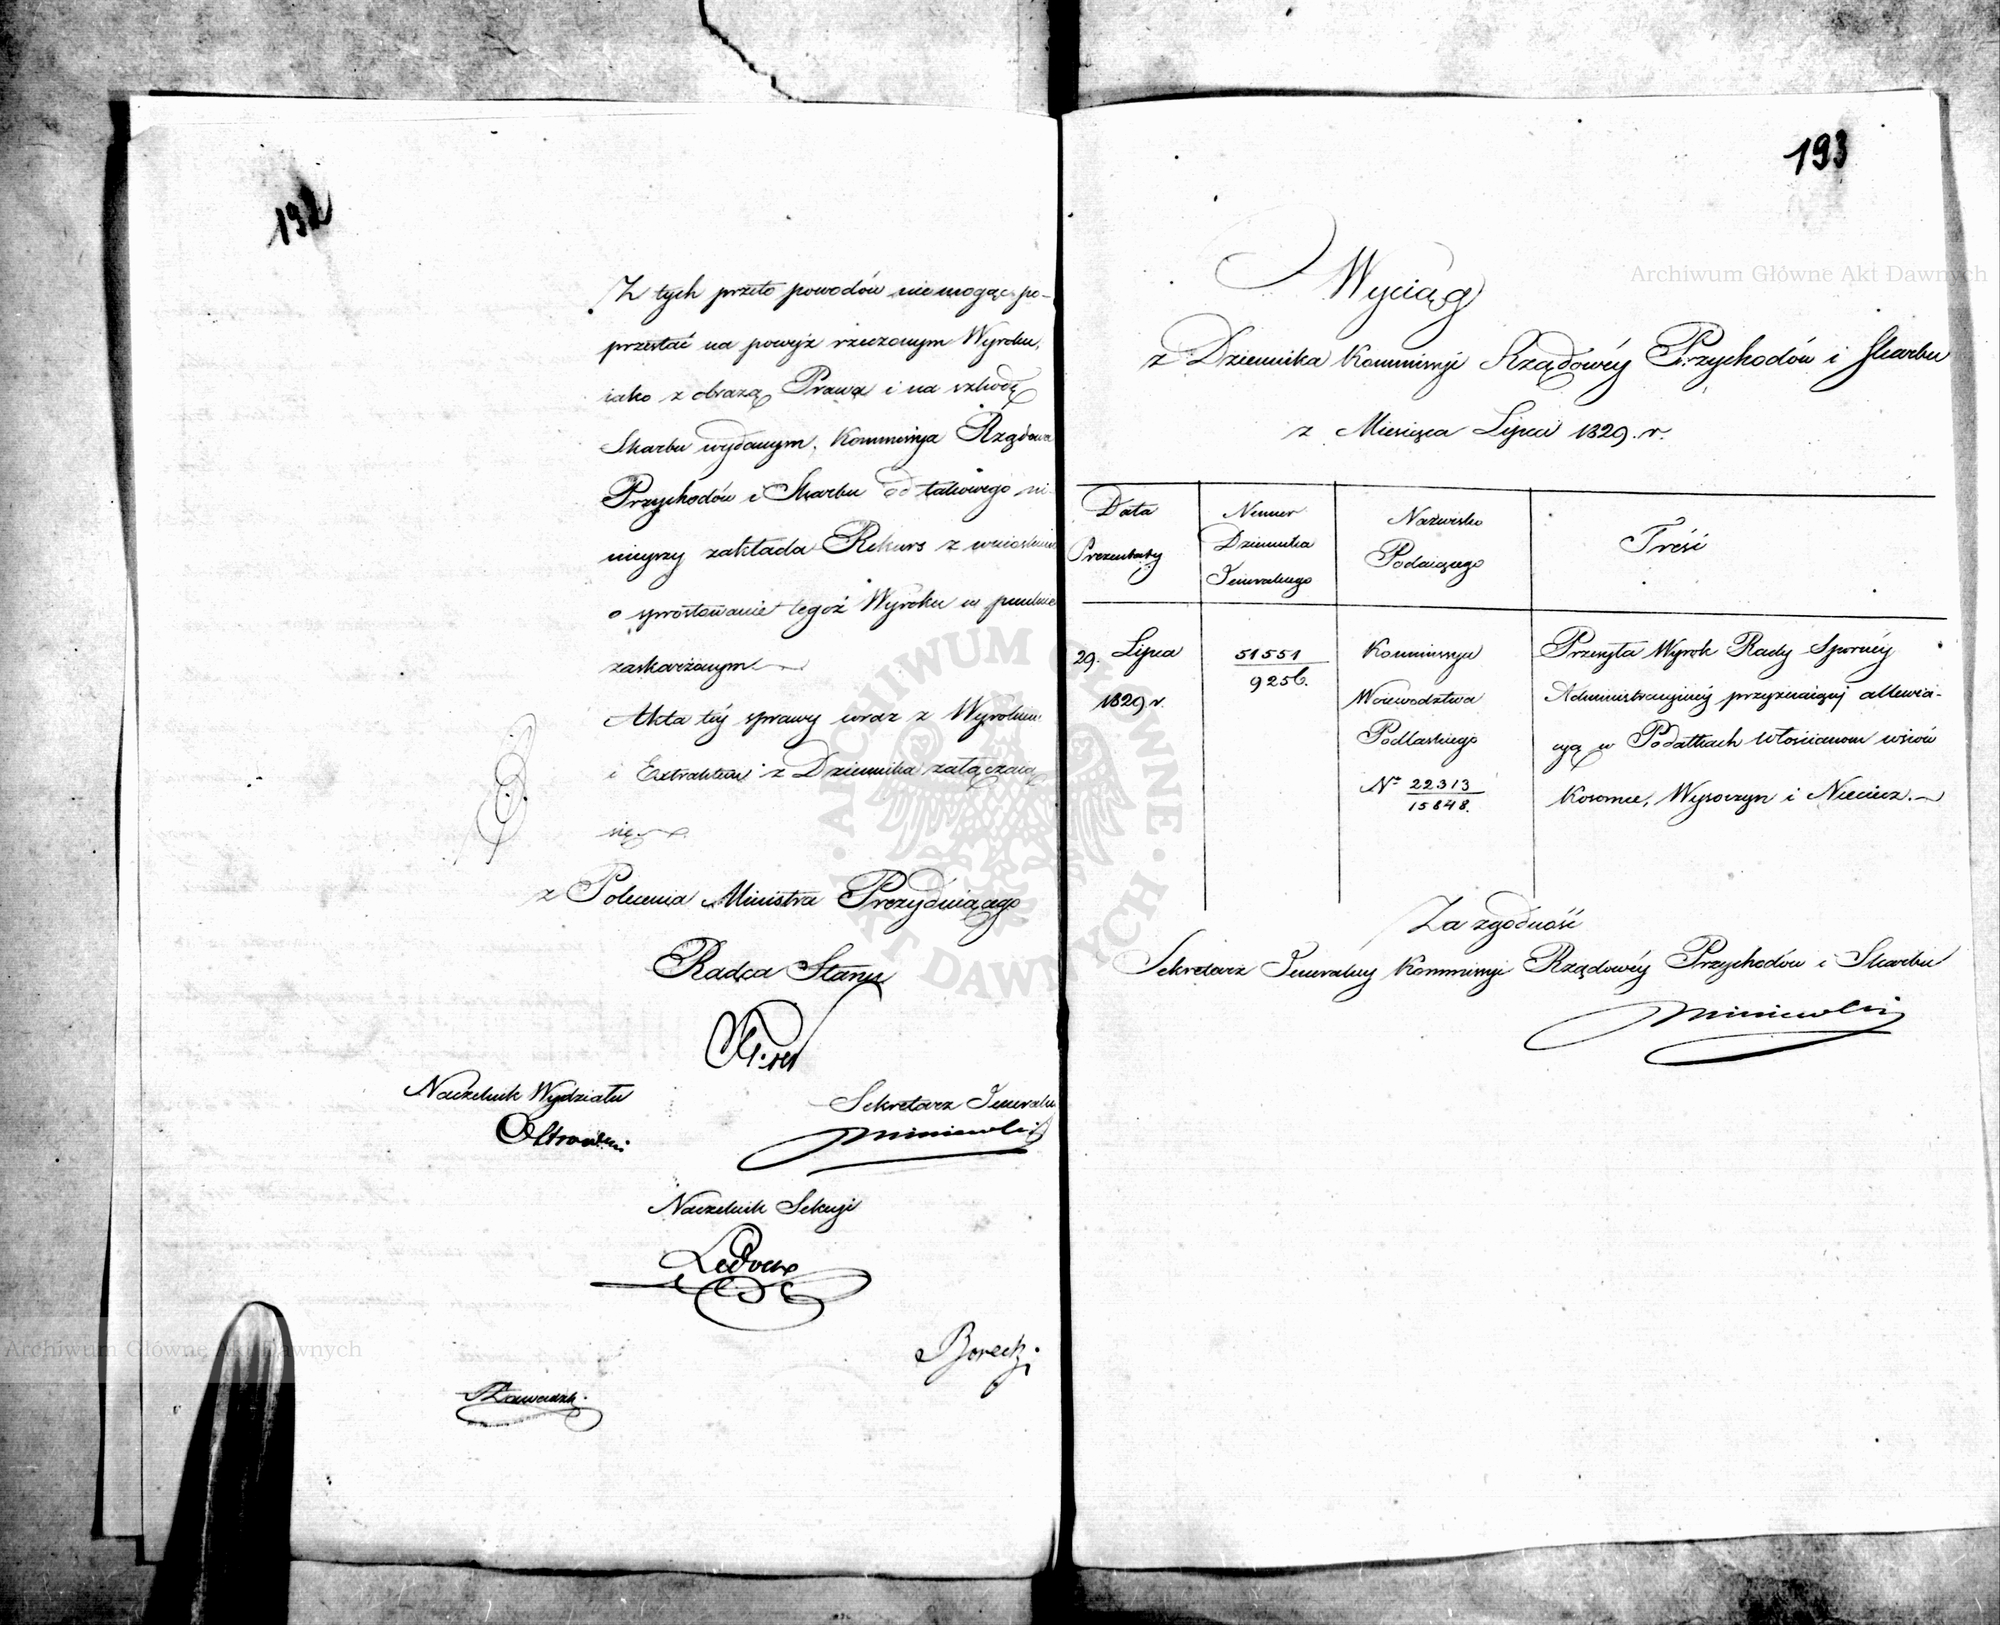 192
Z tych przeto powodów niemogąc po-
przestać na powyż rzeczonym Wyroku,
iako z obrazą Prawa i na szkodę
Skarbu wydanym, Kommissya Rządowa
Przychodów i Skarbu od takowego ni-
nieyszy zakłada Rekurs z wnioskiem
o sprostowanie tegoż Wyroku w punkcie
zaskarżonym
Akta téy sprawy wraz z Wyrokiem
i Extraktem z Dziennika załączaią
się.
z Polecenia Ministra Prezyduiącego
Radca Stanu
Naczelnik Wydziału
Sekretarz Jeneralny
Miniewski
Naczelnik Sekcyi
Borecki
193
Wyciąg
z Dziennika Kommissyi Rządowéy Przychodów i Skarbu
z Miesiąca Lipca 1829. r.
Data Prezentaty
Numer Dziennika Jeneralnego
Nazwisko Podaiącego
Treść
29. Lipca
1829 r.
51551
9256.
Kommissya
Woiewodztwa
Podlaskiego
Nº 22313
15848.
Przesyła Wyrok Rady Sporney
Administracyiney przyznaiący allewia-
cyą w Podatkach włościanom wsiów
Kosomce, Wyroczyn i Nieciecz.
Za zgodność
Sekretarz Jeneralny Kommissyi Rządowéy Przychodów i Skarbu
Miniewski
Archiwum Główne Akt Dawnych
ARCHIWUM GŁÓWNE AKT DAWNYCH
Archiwum Główne Akt Dawnych